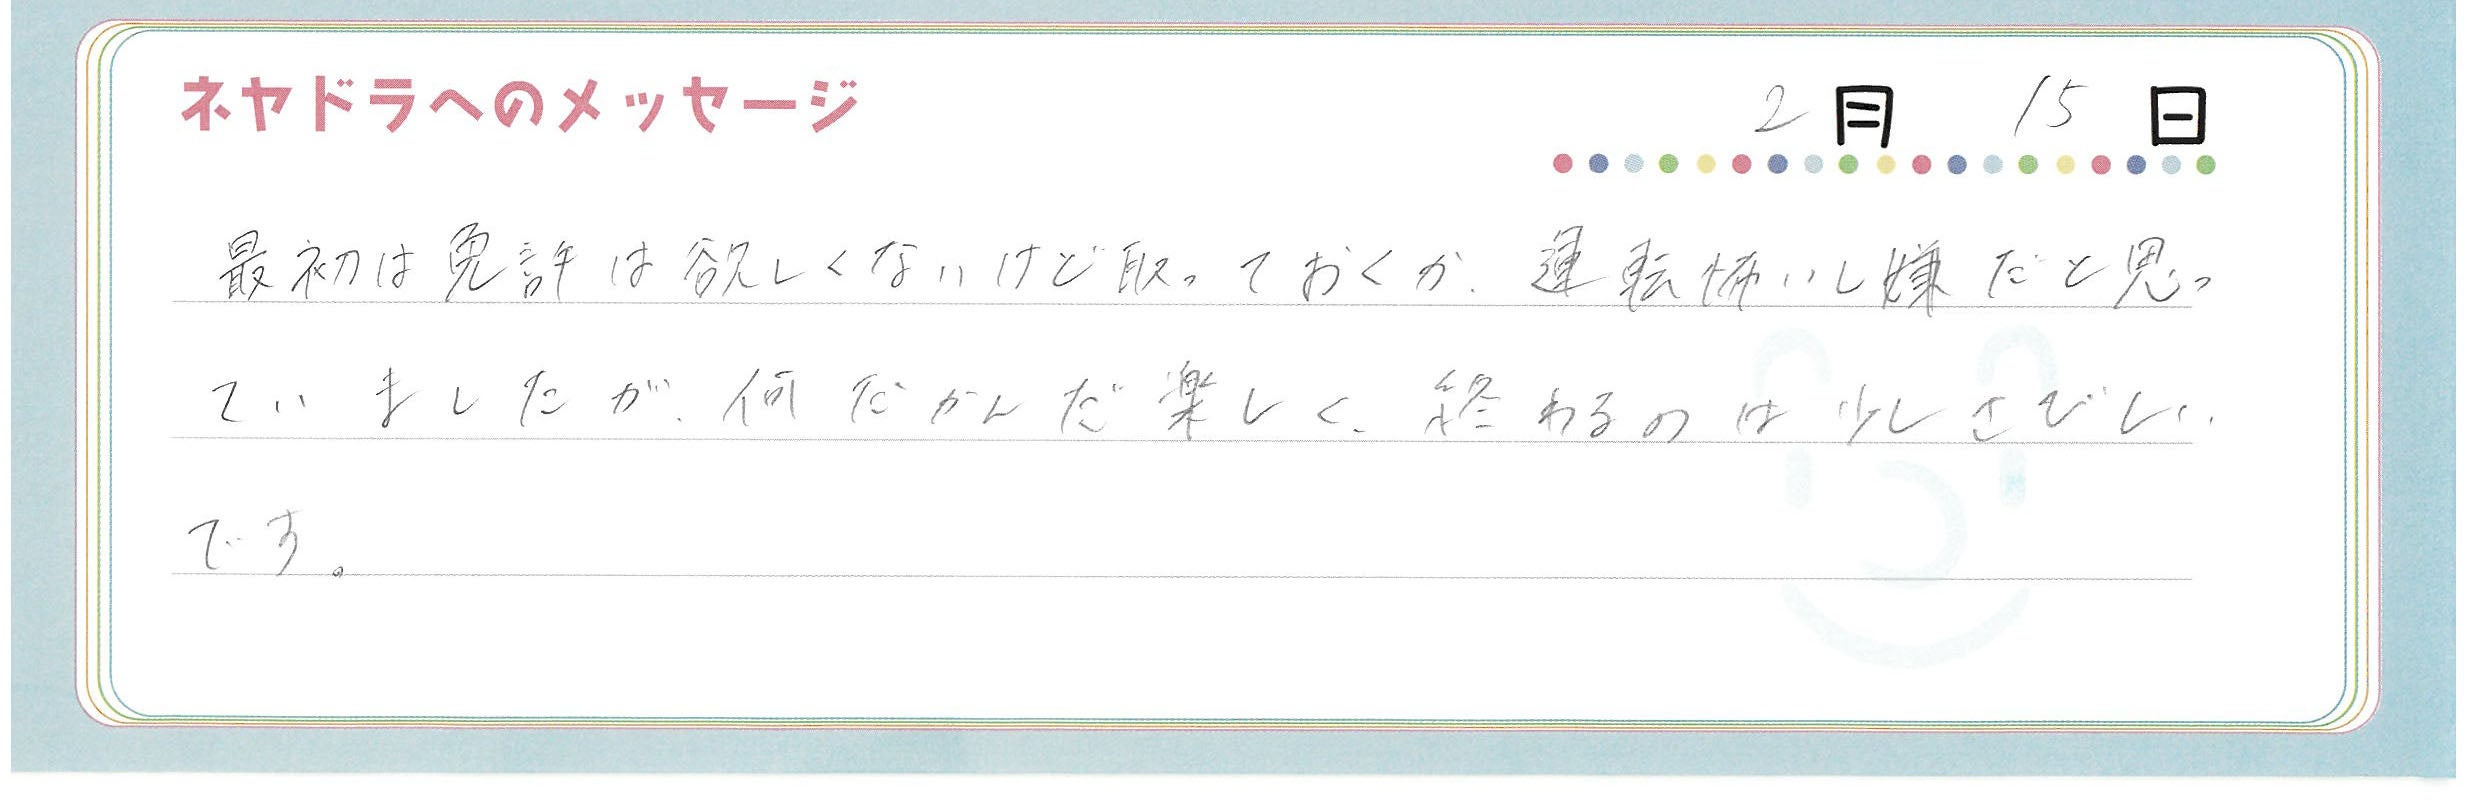 ネヤドラへのメッセージ
2月 15日
最初は免許は欲しくないけど取っておくか、運転怖いし嫌だと思っ
ていましたが、何だかんだ楽しく、終わるのは少しさびしい
です。